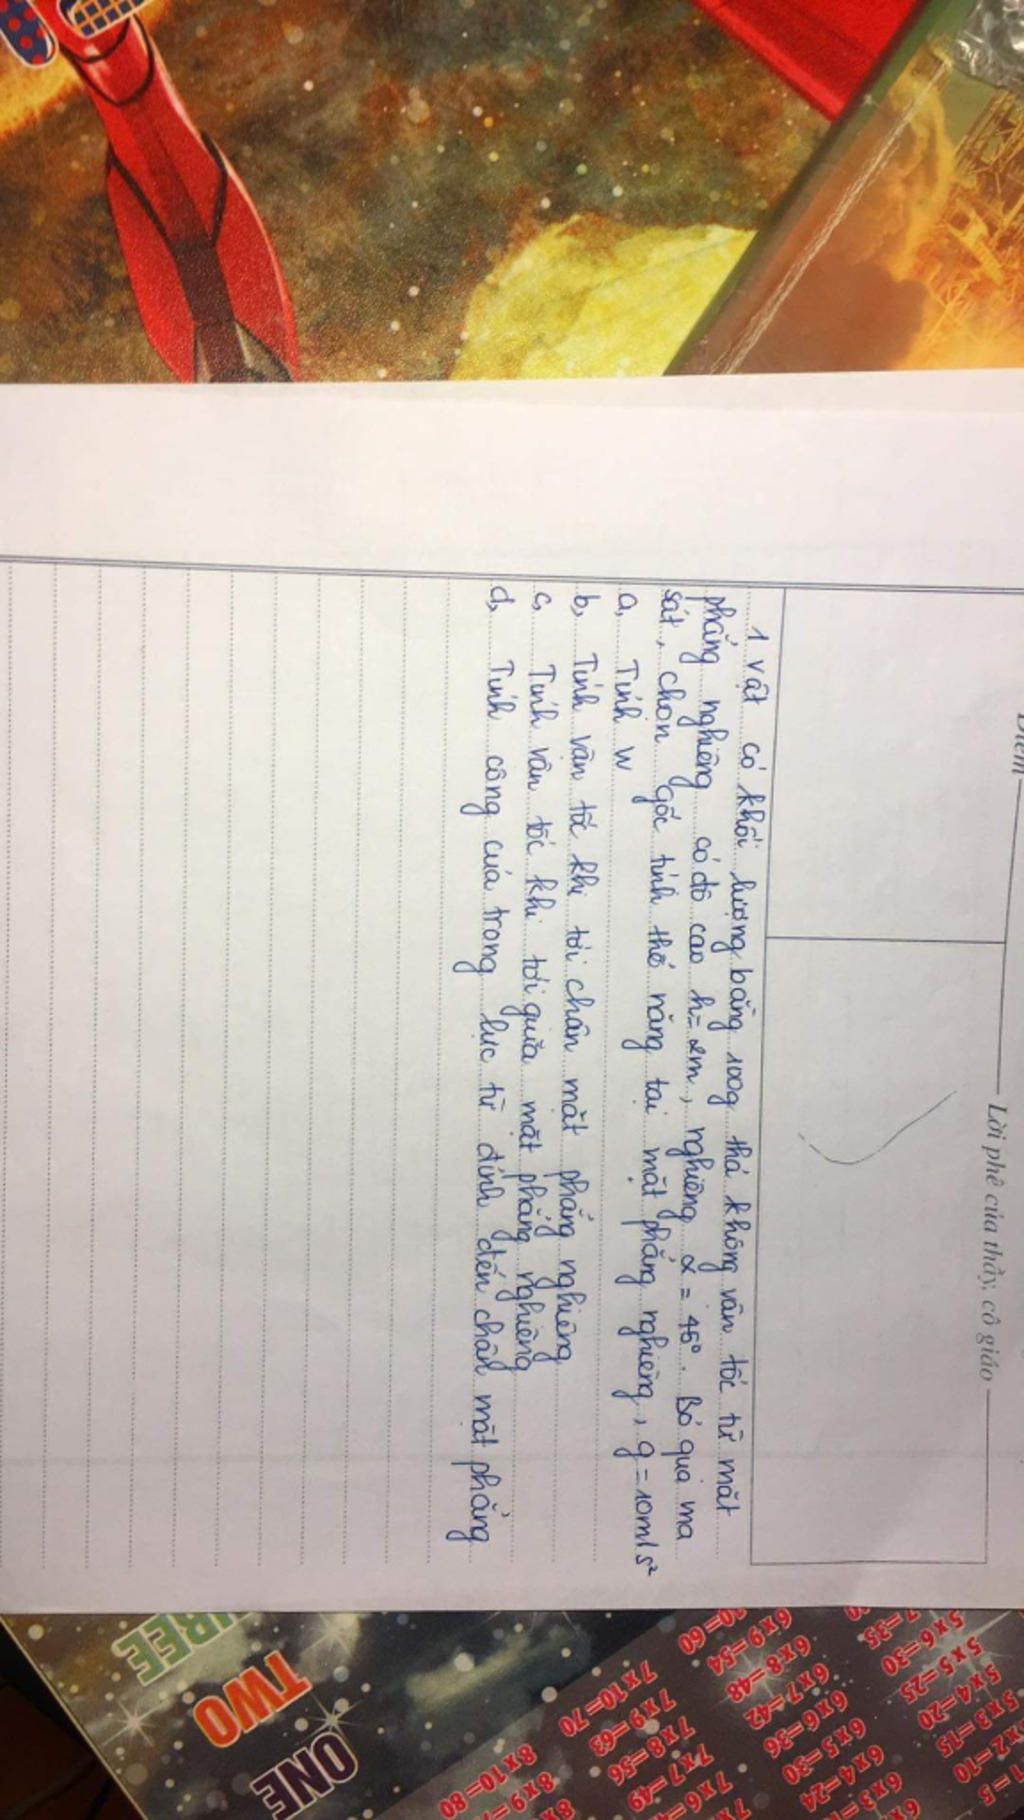 Điểm
Lời phê của thầy, cô giáo
1 vật có khối lượng bằng 100g thả không vân tốc từ mặt
phẳng nghiêng có độ cao h=2m, nghiêng α = 45°. Bỏ qua ma
sát, chọn gốc tính thế năng tại mặt phẳng nghiêng, g=10m/s²
a, Tính W
b, Tính vân tốc khi tới chân mặt phẳng nghiêng
c, Tính vân tốc khi tới giữa mặt phẳng nghiêng
d, Tính công của trọng lực từ đỉnh đến chân mặt phẳng
ONE
TWO
5x4=20
5x5=25
5x6=30
6x5=30
6x6=36
6x7=42
6x8=48
6x9=54
7x7=49
7x8=56
7x9=63
7x10=70
8x10=80